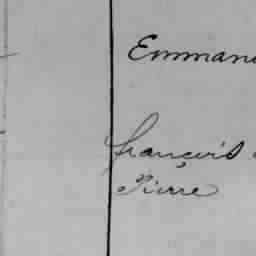 Emman
françois
Pierre